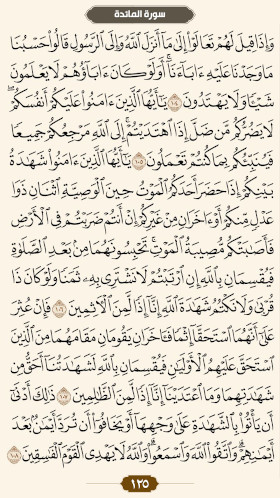 سورة المائدة
وَإِذَا قِيلَ لَهُمْ تَعَالَوْا۟ إِلَىٰ مَآ أَنزَلَ ٱللَّهُ وَإِلَى ٱلرَّسُولِ قَالُوا۟ حَسْبُنَا
مَا وَجَدْنَا عَلَيْهِ ءَابَآءَنَآ أَوَلَوْ كَانَ ءَابَآؤُهُمْ لَا يَعْلَمُونَ
شَيْـًٔا وَلَا يَهْتَدُونَ ١٠٤ يَـٰٓأَيُّهَا ٱلَّذِينَ ءَامَنُوا۟ عَلَيْكُمْ أَنفُسَكُمْ
لَا يَضُرُّكُم مَّن ضَلَّ إِذَا ٱهْتَدَيْتُمْ إِلَى ٱللَّهِ مَرْجِعُكُمْ جَمِيعًا
فَيُنَبِّئُكُم بِمَا كُنتُمْ تَعْمَلُونَ ١٠٥ يَـٰٓأَيُّهَا ٱلَّذِينَ ءَامَنُوا۟ شَهَـٰدَةُ
بَيْنِكُمْ إِذَا حَضَرَ أَحَدَكُمُ ٱلْمَوْتُ حِينَ ٱلْوَصِيَّةِ ٱثْنَانِ ذَوَا
عَدْلٍ مِّنكُمْ أَوْ ءَاخَرَانِ مِنْ غَيْرِكُمْ إِنْ أَنتُمْ ضَرَبْتُمْ فِى ٱلْأَرْضِ
فَأَصَـٰبَتْكُم مُّصِيبَةُ ٱلْمَوْتِ تَحْبِسُونَهُمَا مِنۢ بَعْدِ ٱلصَّلَوٰةِ
فَيُقْسِمَانِ بِٱللَّهِ إِنِ ٱرْتَبْتُمْ لَا نَشْتَرِى بِهِۦ ثَمَنًا وَلَوْ كَانَ ذَا
قُرْبَىٰ وَلَا نَكْتُمُ شَهَـٰدَةَ ٱللَّهِ إِنَّآ إِذًا لَّمِنَ ٱلْـَٔاثِمِينَ ١٠٦ فَإِنْ عُثِرَ
عَلَىٰٓ أَنَّهُمَا ٱسْتَحَقَّآ إِثْمًا فَـَٔاخَرَانِ يَقُومَانِ مَقَامَهُمَا مِنَ ٱلَّذِينَ
ٱسْتَحَقَّ عَلَيْهِمُ ٱلْأَوْلَيَـٰنِ فَيُقْسِمَانِ بِٱللَّهِ لَشَهَـٰدَتُنَآ أَحَقُّ مِن
شَهَـٰدَتِهِمَا وَمَا ٱعْتَدَيْنَآ إِنَّآ إِذًا لَّمِنَ ٱلظَّـٰلِمِينَ ١٠٧ ذَٰلِكَ أَدْنَىٰٓ
أَن يَأْتُوا۟ بِٱلشَّهَـٰدَةِ عَلَىٰ وَجْهِهَآ أَوْ يَخَافُوٓا۟ أَن تُرَدَّ أَيْمَـٰنٌۢ بَعْدَ
أَيْمَـٰنِهِمْ وَٱتَّقُوا۟ ٱللَّهَ وَٱسْمَعُوا۟ وَٱللَّهُ لَا يَهْدِى ٱلْقَوْمَ ٱلْفَـٰسِقِينَ ١٠٨
١٢٥